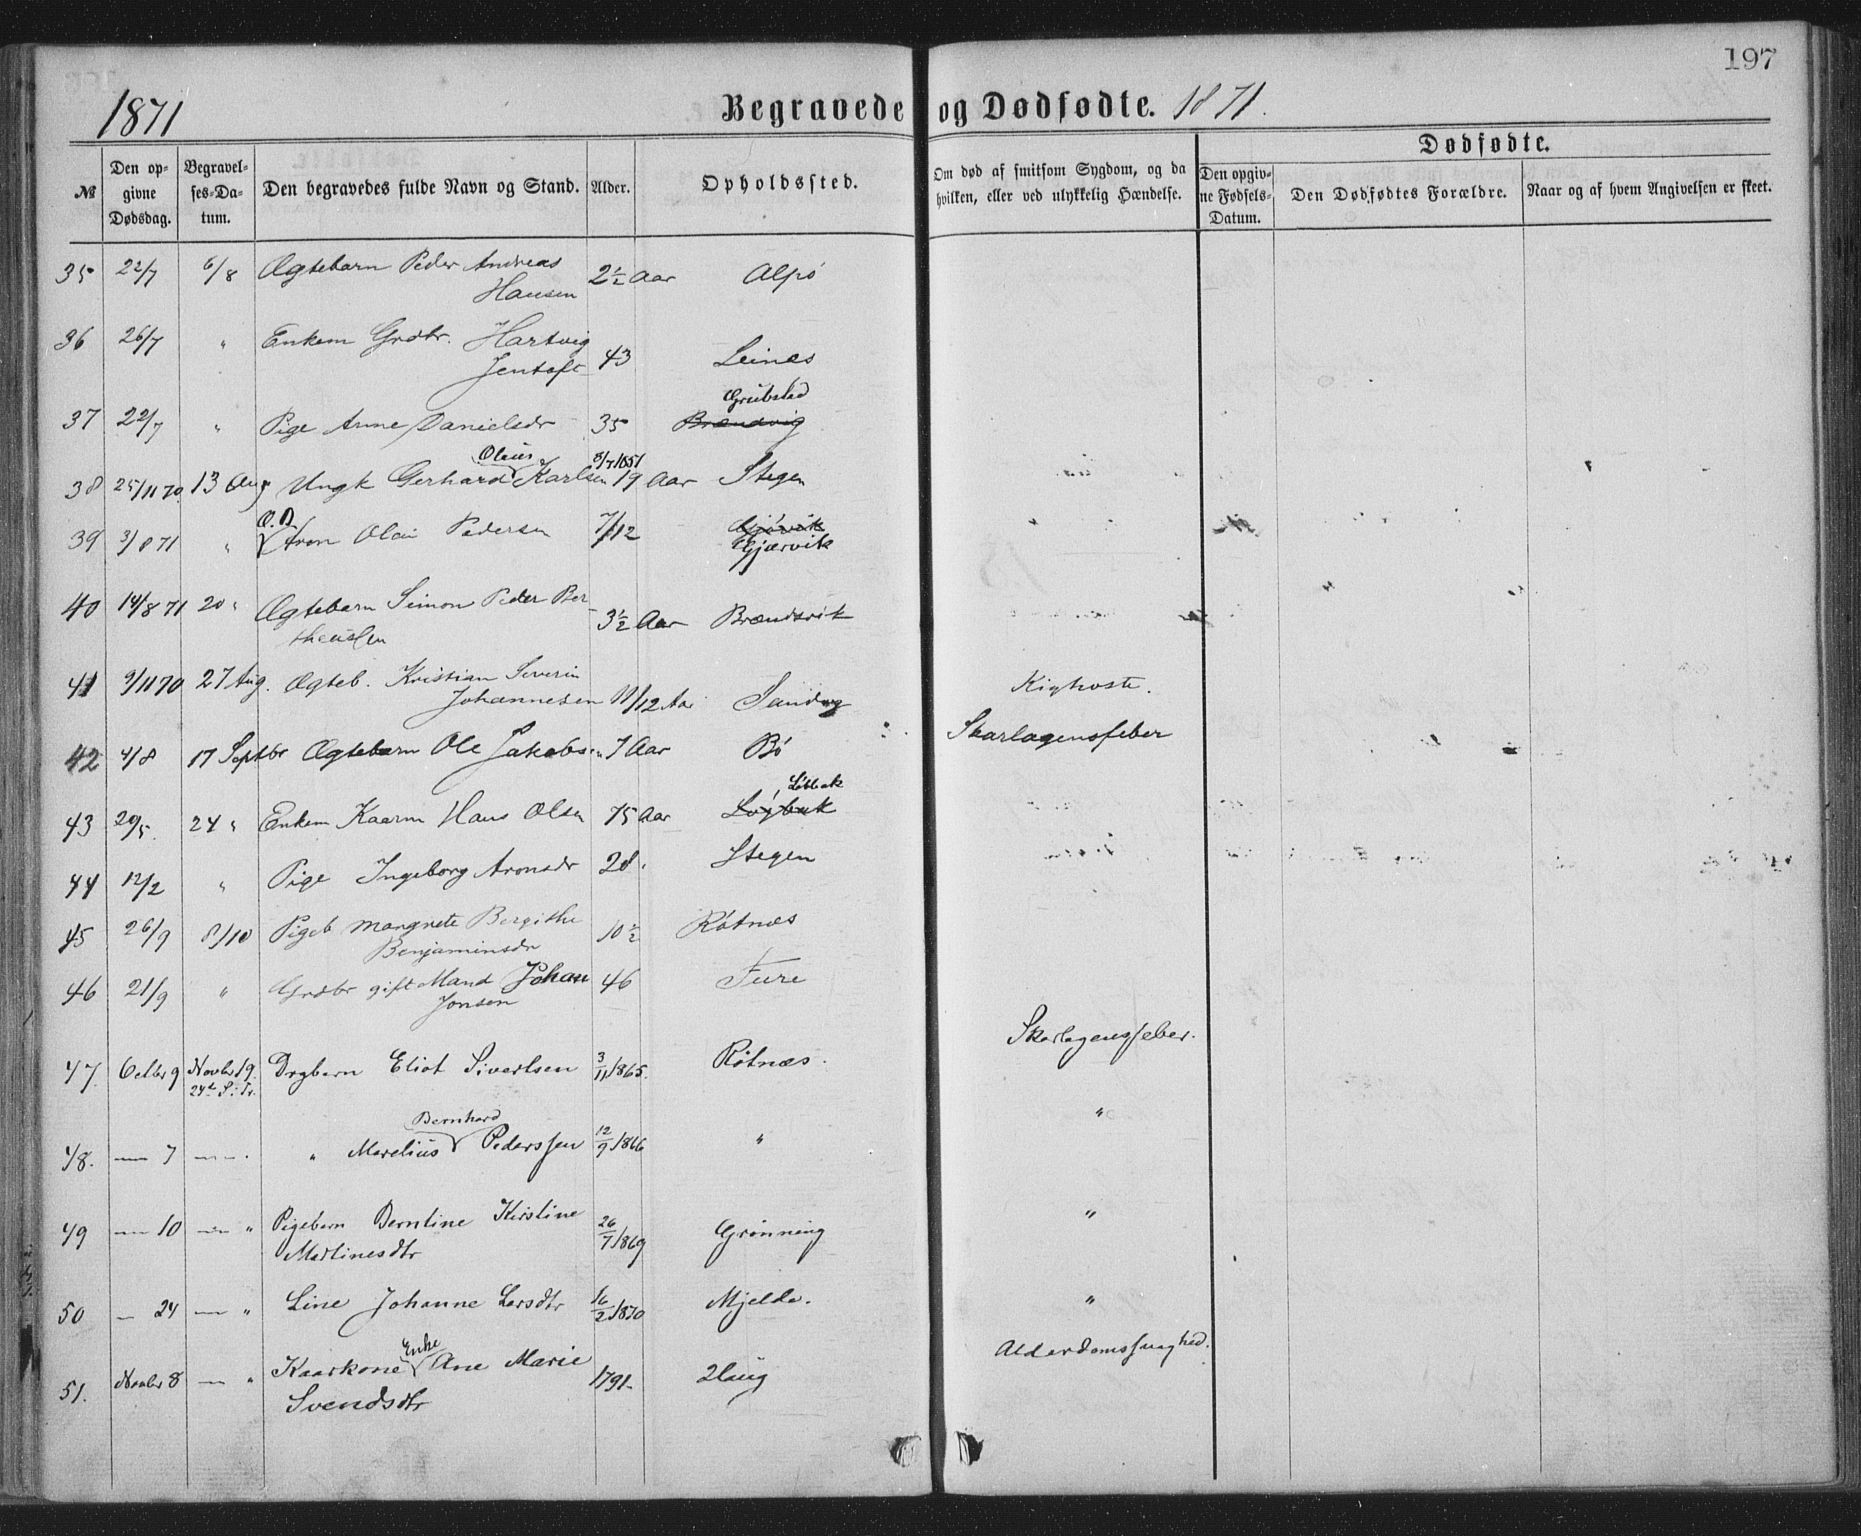 197
1871 Begravede og Dødfødte. 1871.
Dødfødte.
№ Den op- givne Dødsdag. Begravel- ses-Da- tum. Den begravedes fulde Navn og Stand. Alder. Opholdssted. Om død af smitsom Sygdom, og da hvilken, eller ved ulykkelig Hændelse. Den opgiv- ne Fødsels- Datum. Den Dødfødtes Forældre. Naar og af hvem Angivelsen er skeet.
35 22/7 6/8 Ægtebarn Peder Andreas 2½ Aar Alpø
Hansen
36 26/7 " Enkem Grdbr. Hartvig
Jentoft 43 Leines
Grubstad
37 22/7 " Pige Anne Danielsdr 35 Brændvig
Olaus 8/7 1851
38 25/11 70 13 Aug Ungk Gerhard Karlsen 19 Aar Stegen
39 3/8 71 " Aron Olai Pedersen 7/12 Gjørvik
Gjærvik
40 14/8 71 20 " Ægtebarn Simon Peder Ber-
theussen 3½ Aar Brændsvik
41 9/11 70 27 Aug. Ægteb. Kristian Severin Kighoste.
Johannesen 11/12 Aar Sandvg
42 4/8 17 Septbr Ægtebarn Ole Jakobsen 7 Aar Bø Skarlagensfeber
Løbbak
43 29/5 24 " Enkem Kaarm Hans Olsen 75 Aar
44 12/2 " Pige Ingeborg Aronsdr 28 Stegen
45 26/9 8/10 Pigeb Margrete Bergithe 10½ Røtnæs
Benjaminsdr
46 21/9 " Grdbr gift Mand Johan 46 Fure
Jonsen
47. Octbr 9 Novbr 19. Drgbarn Eliot Sivertsen 3/11 1865. Røtnæs. Skarlagensfeber.
24de S. i Tr.
Bernhard
48. — 7 — — " Marelius Pederssen 12/9 1866 " "
49 — 10 — " Pigebarn Berntine Kirstine 26/7 1869 Grønning "
Martinesdtr
50 — 24 — " Line Johanne Larsdtr 16/2 1870 Mjelde. "
Enke
51. Novbr 8 — " Kaarkone Ane Marie 1791. Haug Alderdomssvaghed.
Svendsdtr